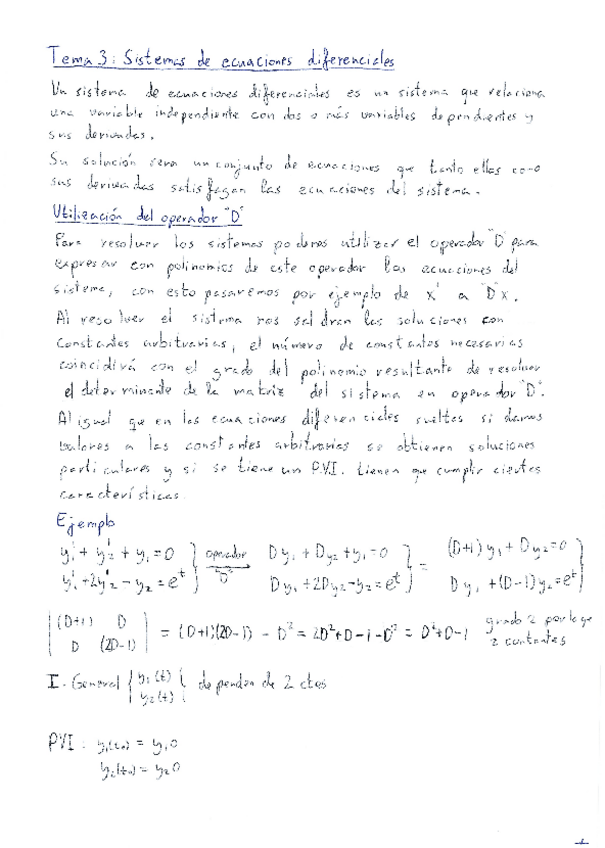 Tema 3: Sistemas de ecuaciones diferenciales
Un sistema de ecuaciones diferenciales es un sistema que relaciona
una variable independiente con dos o más variables dependientes y
sus derivadas.
Su solución sera un conjunto de ecuaciones que tanto ellas como
sus derivadas satisfagan las ecuaciones del sistema.
Utilización del operador "D"
Para resolver los sistemas podemos utilizar el operador "D" para
expresar con polinomios de este operador las ecuaciones del
sistema, con esto pasaremos por ejemplo de x' a "D"x.
Al resolver el sistema nos saldran las soluciones con
constantes arbitrarias, el número de constantes necesarias
coincidirá con el grado del polinomio resultante de resolver
el determinante de la matriz del sistema en operador "D".
Al igual que en las ecuaciones diferenciales sueltas si damos
valores a las constantes arbitrarias se obtienen soluciones
particulares y si se tiene un P.V.I. tienen que cumplir ciertas
características.
Ejemplo
y₁' + y₂' + y₁ = 0 } operador "D" → Dy₁ + Dy₂ + y₁ = 0 } = (D+1)y₁ + Dy₂ = 0 }
y₁' + 2y₂' - y₂ = eᵗ } Dy₁ + 2Dy₂ - y₂ = eᵗ } Dy₁ + (D-1)y₂ = eᵗ }
| (D+1) D | = (D+1)(2D-1) - D² = 2D² + D - 1 - D² = D² + D - 1 grado 2 por lo que
| D (2D-1) | 2 contantes
I. General { y₁(t) } dependen de 2 ctes
{ y₂(t) }
PVI: y₁(t₀) = y₁0
y₂(t₀) = y₂0